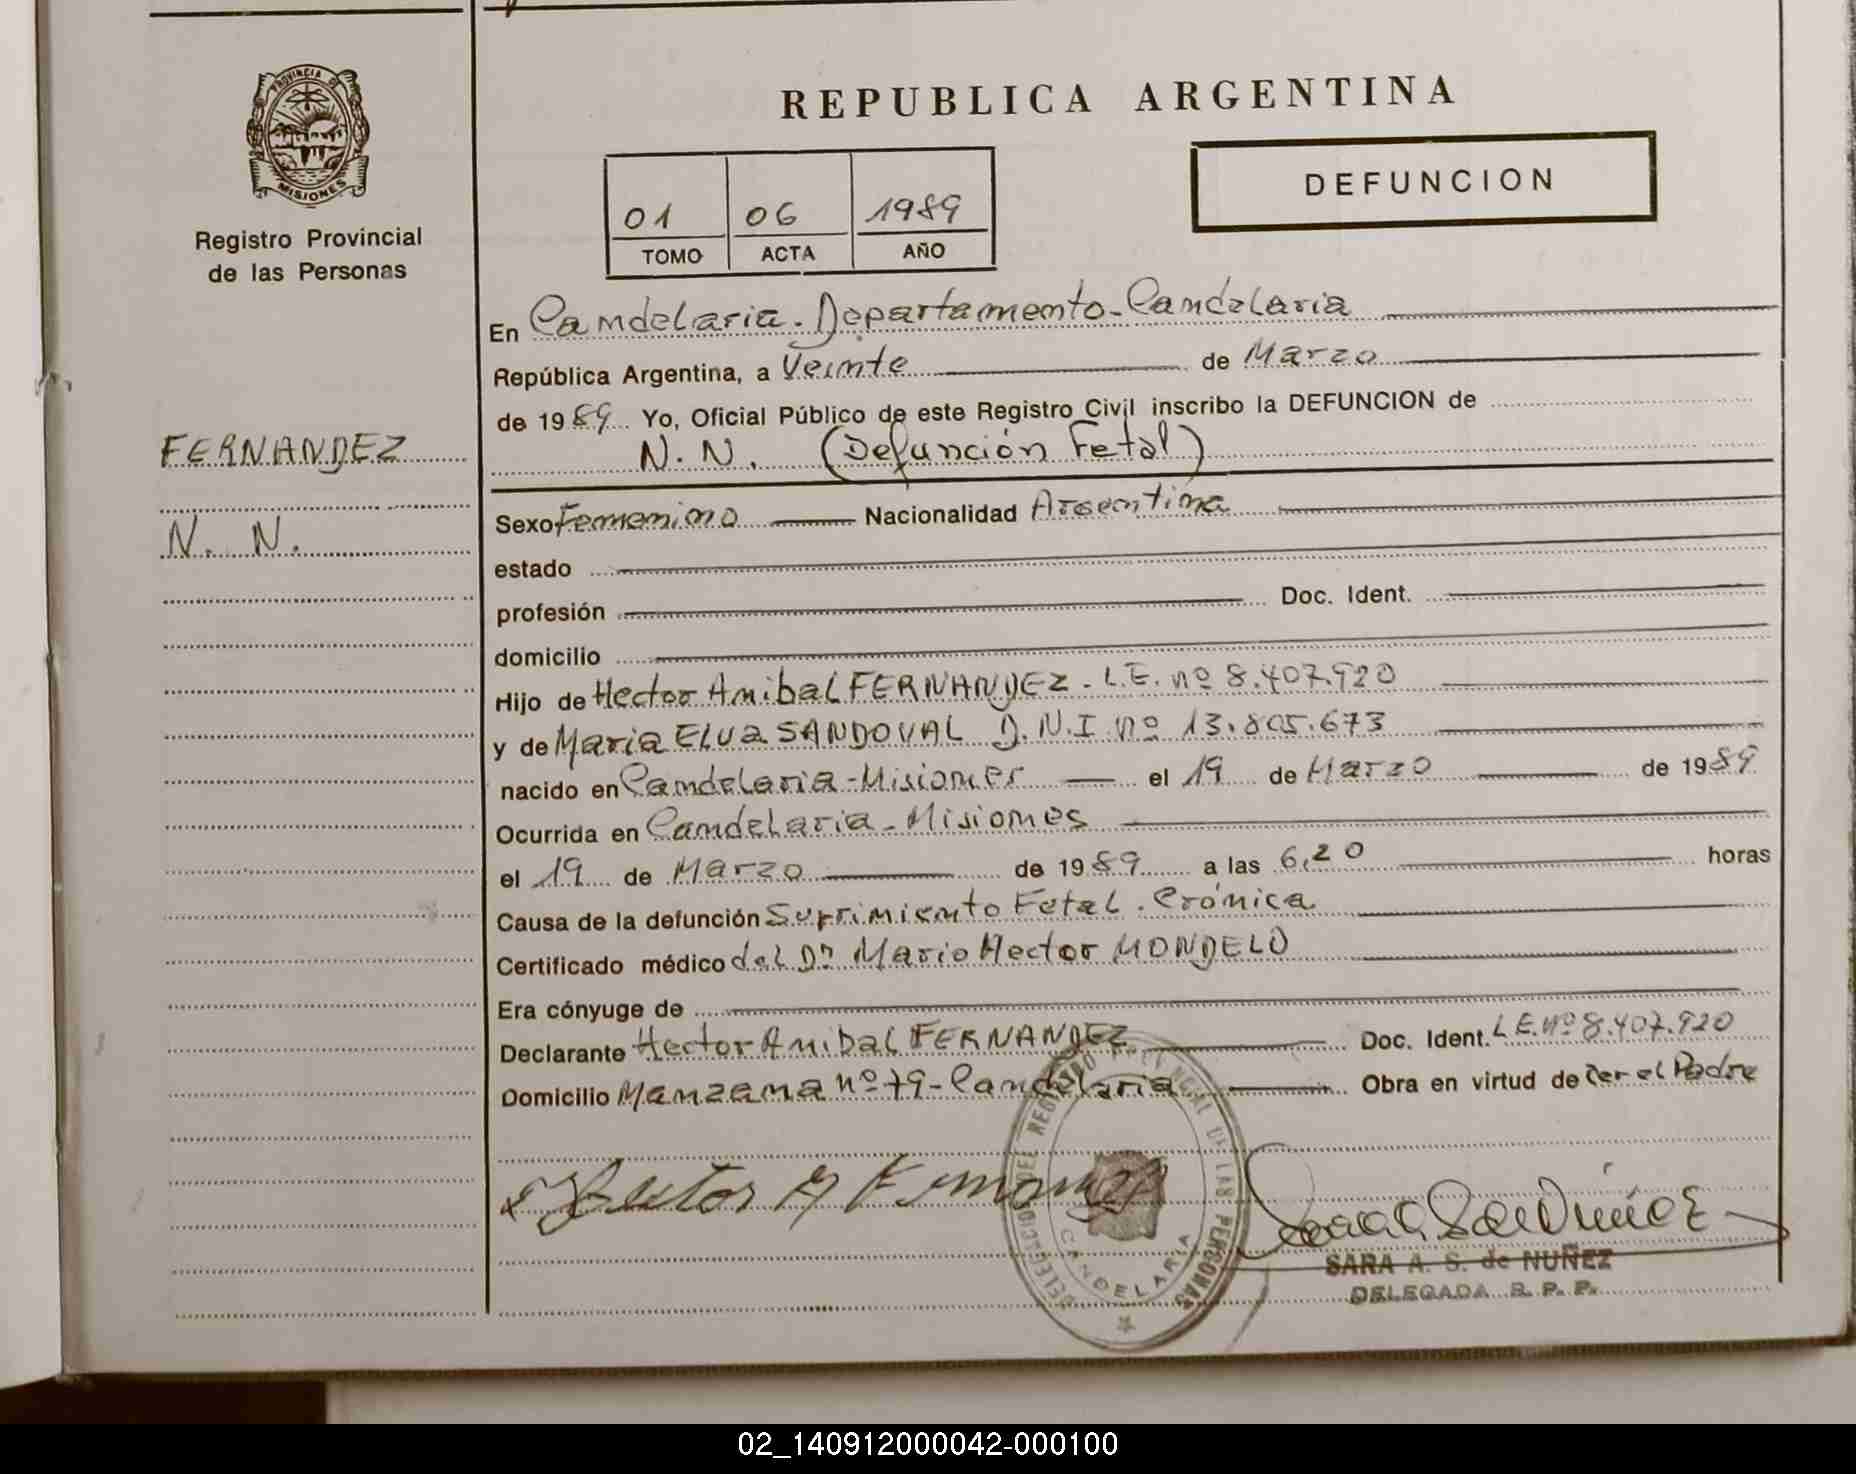 PROVINCIA DE
MISIONES
Registro Provincial
de las Personas
FERNANDEZ
N. N.
REPUBLICA ARGENTINA
DEFUNCION
01 06 1989
TOMO ACTA AÑO
En Candelaria. Departamento - Candelaria
República Argentina, a Veinte de Marzo
de 1989 Yo, Oficial Público de este Registro Civil inscribo la DEFUNCION de
N. N. (Defunción Fetal)
Sexo Femenino Nacionalidad Argentina
estado
profesión Doc. Ident.
domicilio
Hijo de Hector Anibal FERNANDEZ - L.E. nº 8.407.920
y de Maria ELVA SANDOVAL D.N.I nº 13.805.673
nacido en Candelaria - Misiones el 19 de Marzo de 1989
Ocurrida en Candelaria - Misiones
el 19 de Marzo de 1989 a las 6,20 horas
Causa de la defunción Sufrimiento Fetal. Crónica
Certificado médico del Dr Mario Hector MONDELO
Era cónyuge de
Declarante Hector Anibal FERNANDEZ Doc. Ident. L.E. nº 8.407.920
Domicilio Manzana nº 79 - Candelaria Obra en virtud de ser el Padre
DELEGACION DEL REGISTRO PROVINCIAL DE LAS PERSONAS
CANDELARIA
SARA A. S. de NUÑEZ
DELEGADA R. P. P.
02_140912000042-000100